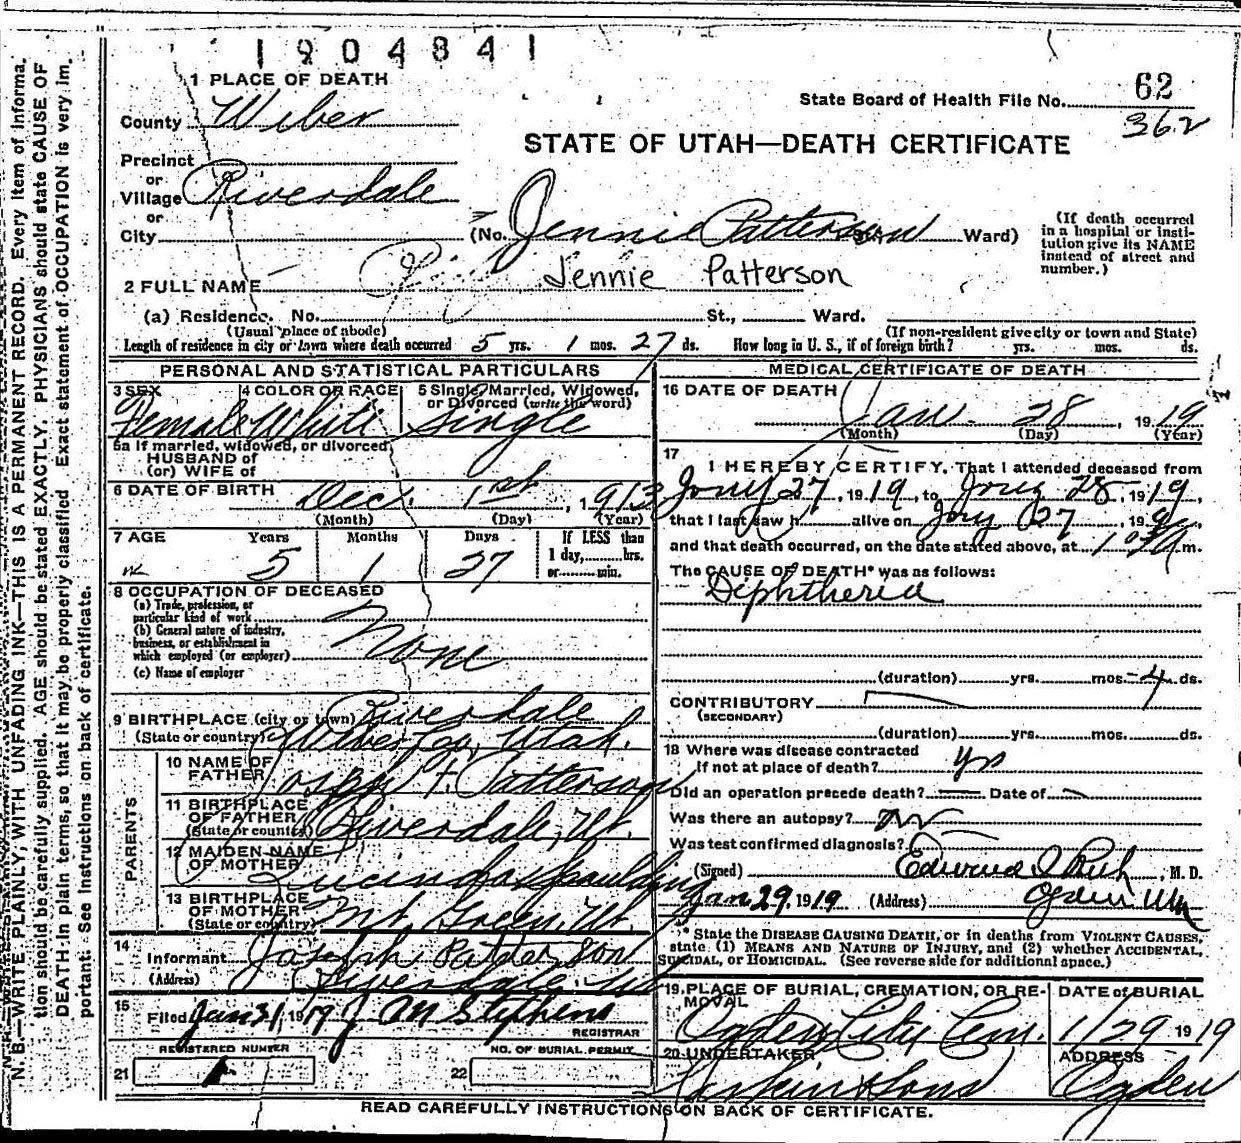 1904841
1 PLACE OF DEATH
County Weber
Precinct
or
Village Riverdale
or
City
State Board of Health File No. 62
362
STATE OF UTAH—DEATH CERTIFICATE
(No. Jennie Patterson St. Ward)
(If death occurred
in a hospital or insti-
tution give its NAME
instead of street and
number.)
2 FULL NAME Jennie Patterson
(a) Residence. No. St., Ward.
(Usual place of abode) (If non-resident give city or town and State)
Length of residence in city or town where death occurred 5 yrs. 1 mos. 27 ds. How long in U. S., if of foreign birth? yrs. mos. ds.
PERSONAL AND STATISTICAL PARTICULARS
3 SEX 4 COLOR OR RACE 5 Single, Married, Widowed,
or Divorced (write the word)
Female White Single
5a If married, widowed, or divorced
HUSBAND of
(or) WIFE of
6 DATE OF BIRTH Dec. 1st, 1913
(Month) (Day) (Year)
7 AGE Years Months Days If LESS than
1 day, hrs.
or min.
5 1 27
8 OCCUPATION OF DECEASED
(a) Trade, profession, or
particular kind of work
(b) General nature of industry,
business, or establishment in
which employed (or employer)
None
(c) Name of employer
9 BIRTHPLACE (city or town) Riverdale
(State or country) Weber Co, Utah.
PARENTS
10 NAME OF
FATHER Joseph F. Patterson
11 BIRTHPLACE
OF FATHER
(State or country) Riverdale, Ut.
12 MAIDEN NAME
OF MOTHER Lucinda Spaulding
13 BIRTHPLACE
OF MOTHER
(State or country) Mt. Green, Ut
14
Informant Joseph Patterson
(Address) Riverdale, Ut
15
Filed Jan 31, 1919 J M Stephens
REGISTRAR
REGISTERED NUMBER NO. OF BURIAL PERMIT
21 1 22
MEDICAL CERTIFICATE OF DEATH
16 DATE OF DEATH
Jan. 28, 1919
(Month) (Day) (Year)
17
I HEREBY CERTIFY, That I attended deceased from
Jany 27, 1919, to Jany 28, 1919,
that I last saw h alive on Jany 27, 1919,
and that death occurred, on the date stated above, at m.
The CAUSE OF DEATH* was as follows:
Diphtheria
(duration) yrs. mos. 4 ds.
CONTRIBUTORY
(SECONDARY)
(duration) yrs. mos. ds.
18 Where was disease contracted
If not at place of death? yes
Did an operation precede death? Date of
Was there an autopsy? no
Was test confirmed diagnosis?
(Signed) Edward I Rich, M. D.
Jan 29, 1919 (Address) Ogden Utah
* State the DISEASE CAUSING DEATH, or in deaths from VIOLENT CAUSES,
state (1) MEANS AND NATURE OF INJURY, and (2) whether ACCIDENTAL,
SUICIDAL, OR HOMICIDAL. (See reverse side for additional space.)
19 PLACE OF BURIAL, CREMATION, OR RE-
MOVAL
Ogden City Cem.
DATE of BURIAL
1/29 1919
20 UNDERTAKER
Larkin & Sons
ADDRESS
Ogden
READ CAREFULLY INSTRUCTIONS ON BACK OF CERTIFICATE.
N. B.—WRITE PLAINLY, WITH UNFADING INK—THIS IS A PERMANENT RECORD. Every item of informa-
tion should be carefully supplied. AGE should be stated EXACTLY. PHYSICIANS should state CAUSE OF
DEATH in plain terms, so that it may be properly classified. Exact statement of OCCUPATION is very im-
portant. See instructions on back of certificate.